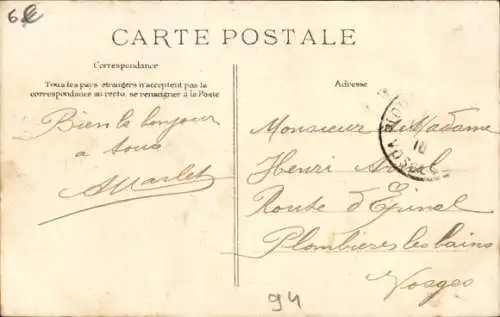 6€
CARTE POSTALE
Correspondance
Tous les pays étrangers n'acceptent pas la
correspondance au recto, se renseigner à la Poste
Adresse
Bien le bonjour
a tous
AMarlet
Monsieur et Madame
Henri
Route d'Epinal
Plombieres les bains
Vosges
94